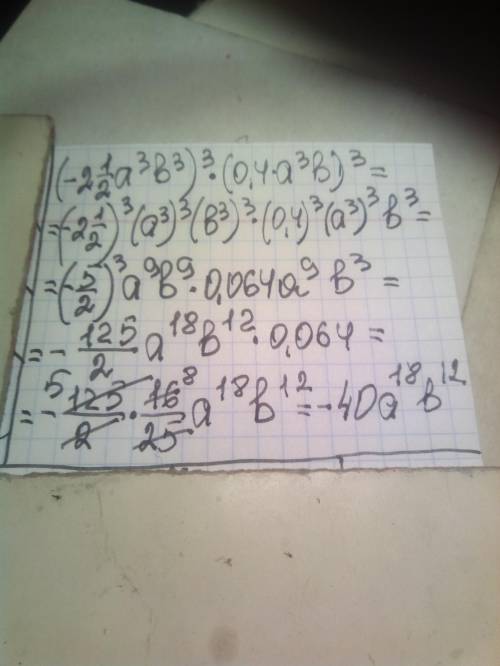 (-2 1/2 a³b³)³·(0,4·a³b)³=
=(-2 1/2)³(a³)³(b³)³·(0,4)³(a³)³b³=
=(-5/2)³a⁹b⁹·0,064a⁹b³=
=-125/2 a¹⁸b¹²·0,064=
=-125/2·16/25 a¹⁸b¹²=-40a¹⁸b¹²